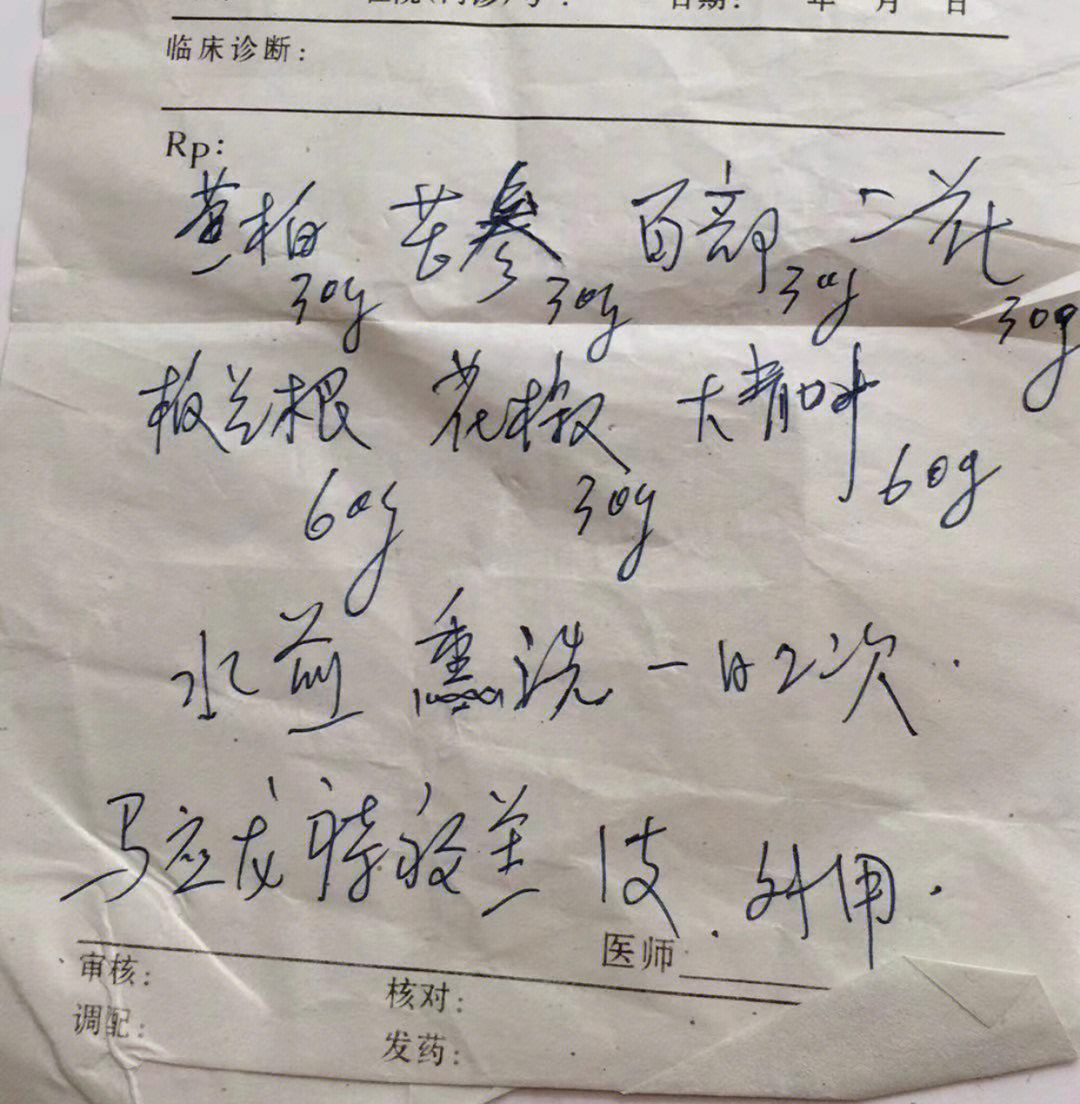 日期: 年 月 日
临床诊断:
Rp:
黄柏 苦参 百部 二花
30g 30g 30g 30g
板兰根 花椒 大青叶
60g 30g 60g
水煎 熏洗 一日2次.
马应龙痔疮膏 1支. 外用.
医师
审核: 核对:
调配: 发药: